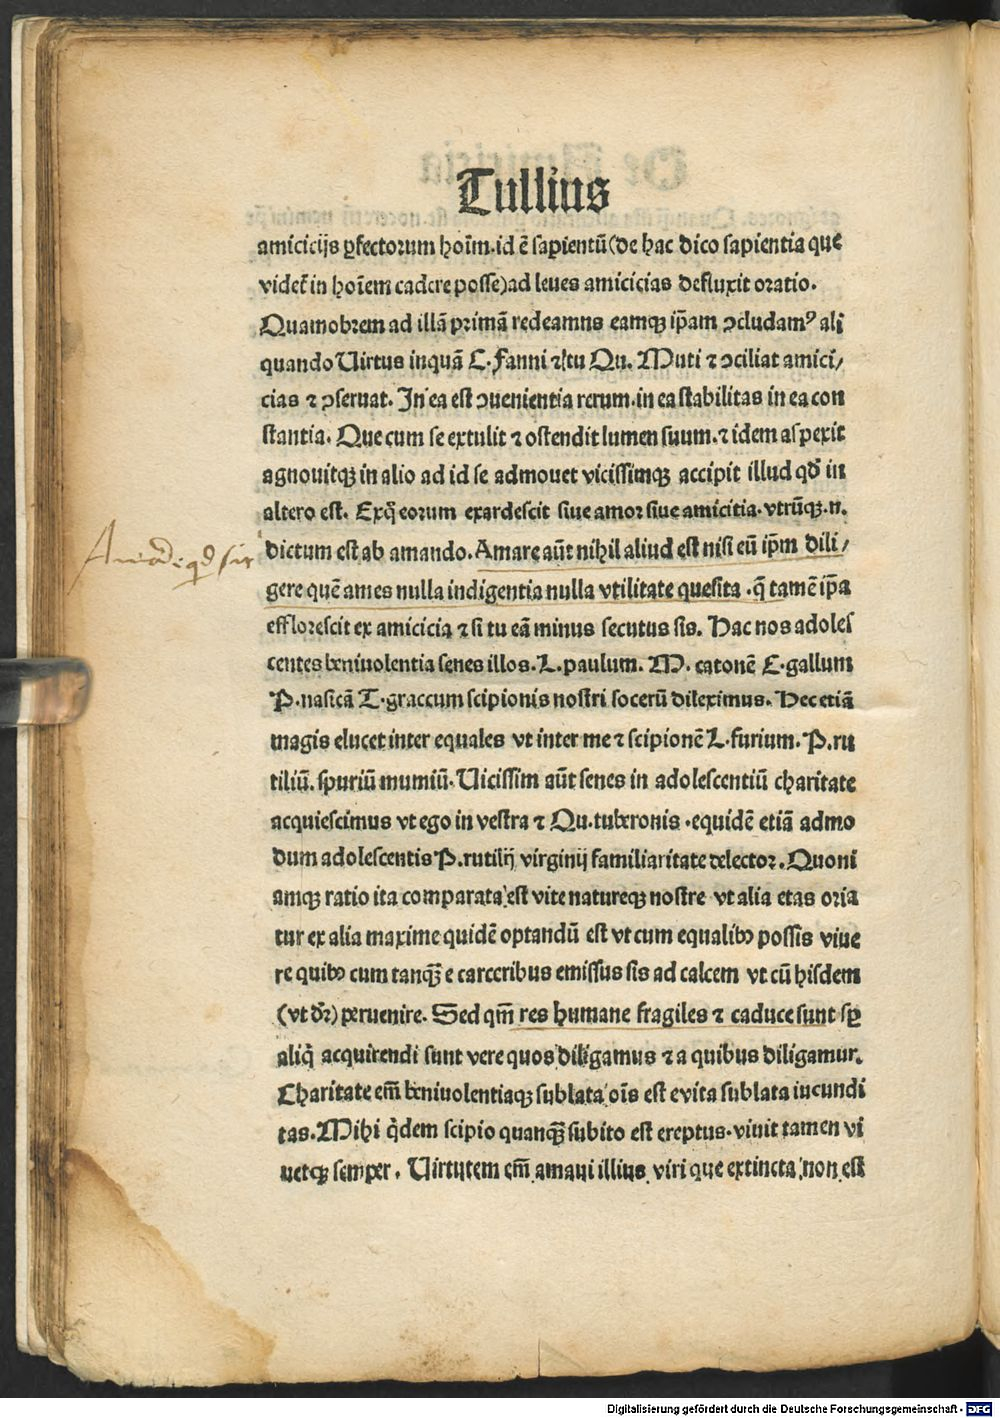 Tullius
amicicijs ꝑfectorum hoīm.id ē sapientū(de hac dico sapientia que
videt̄ in hoīem cadere posse)ad leues amicicias defluxit oratio.
Quamobrem ad illā primā redeamus eamqꝫ ip̄am ↄcludamꝰ ali
quando Uirtus inquā C.Fanni ⁊ tu Qu. Muti ⁊ ↄciliat amici/
cias ⁊ ↄseruat. In ea est ↄuenientia rerum.in ea stabilitas in ea con
stantia. Que cum se extulit ⁊ ostendit lumen suum.⁊ idem aspexit
agnouitqꝫ in alio ad id se admouet vicissimqꝫ accipit illud qd̄ in
altero est. Exq̄ eorum exardescit siue amor siue amicitia.vtrūqꝫ.n.
dictum est ab amando. Amare aūt nihil aliud est nisi eū ip̄m dili/
gere quē ames nulla indigentia nulla vtilitate quesita .q̄ tamē ip̄a
efflorescit ex amicicia ⁊ si tu eā minus secutus sis. Hac nos adoles
centes beniuolentia senes illos. L. paulum. M. catonē C.gallum
P.nasicā T.graccum scipionis nostri socerū dileximus. Hec etiā
magis elucet inter equales vt inter me ⁊ scipionē L.furium. P.ru
tiliū. spuriū mumiū. Uicissim aūt senes in adolescentiū charitate
acquiescimus vt ego in vestra ⁊ Qu.tuberonis .equidē etiā admo
dum adolescentis P.rutilij virginij familiaritate delector. Quoni
amqꝫ ratio ita comparata est vite natureqꝫ nostre vt alia etas oria
tur ex alia maxime quidē optandū est vt cum equalibꝫ possis viue
re quibꝫ cum tanqꝫ̄ e carceribus emissus sis ad calcem vt cū hisdem
(vt dr̄) peruenire. Sed qm̄ res humane fragiles ⁊ caduce sunt sꝑ
aliq̄ acquirendi sunt vere quos diligamus ⁊ a quibus diligamur.
Charitate em̄ beniuolentiaqꝫ sublata oīs est evita sublata iucundi
tas. Mihi q̄dem scipio quanqꝫ̄ subito est ereptus.viuit tamen vi
uetqꝫ semper. Uirtutem em̄ amaui illius viri que extincta non est
Digitalisierung gefördert durch die Deutsche Forschungsgemeinschaft - DFG